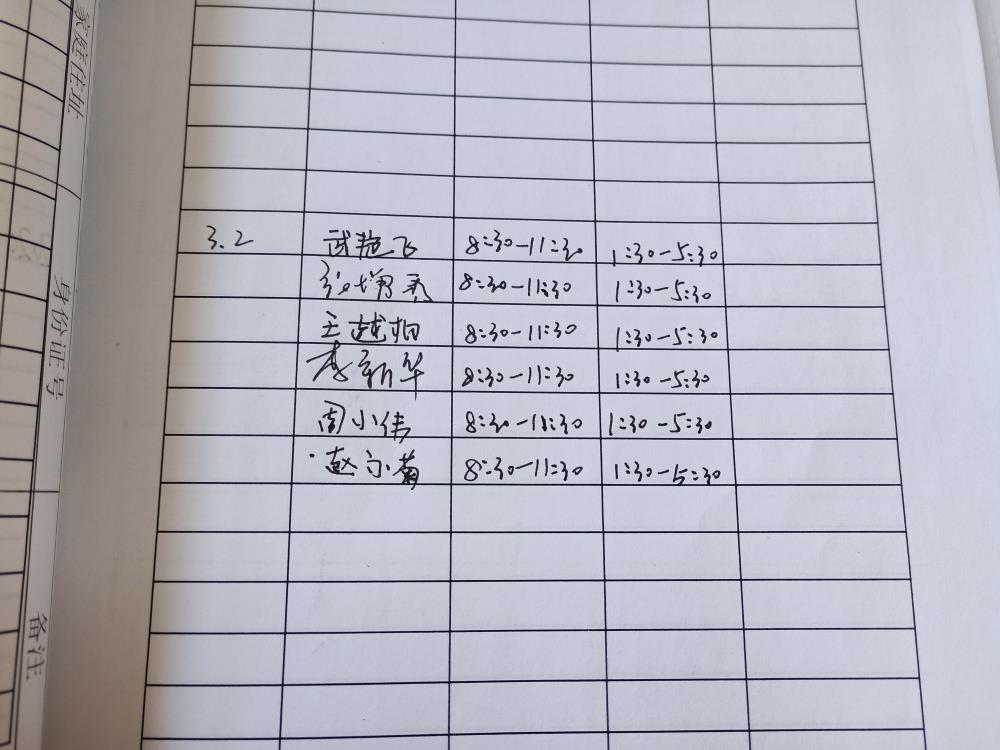 家庭住址
身份证号
备注
3.2 武艳飞 8:30-11:30 1:30-5:30
8:30-11:30 1:30-5:30
王越柏 8:30-11:30 1:30-5:30
李新华 8:30-11:30 1:30-5:30
周小伟 8:30-11:30 1:30-5:30
赵小菊 8:30-11:30 1:30-5:30